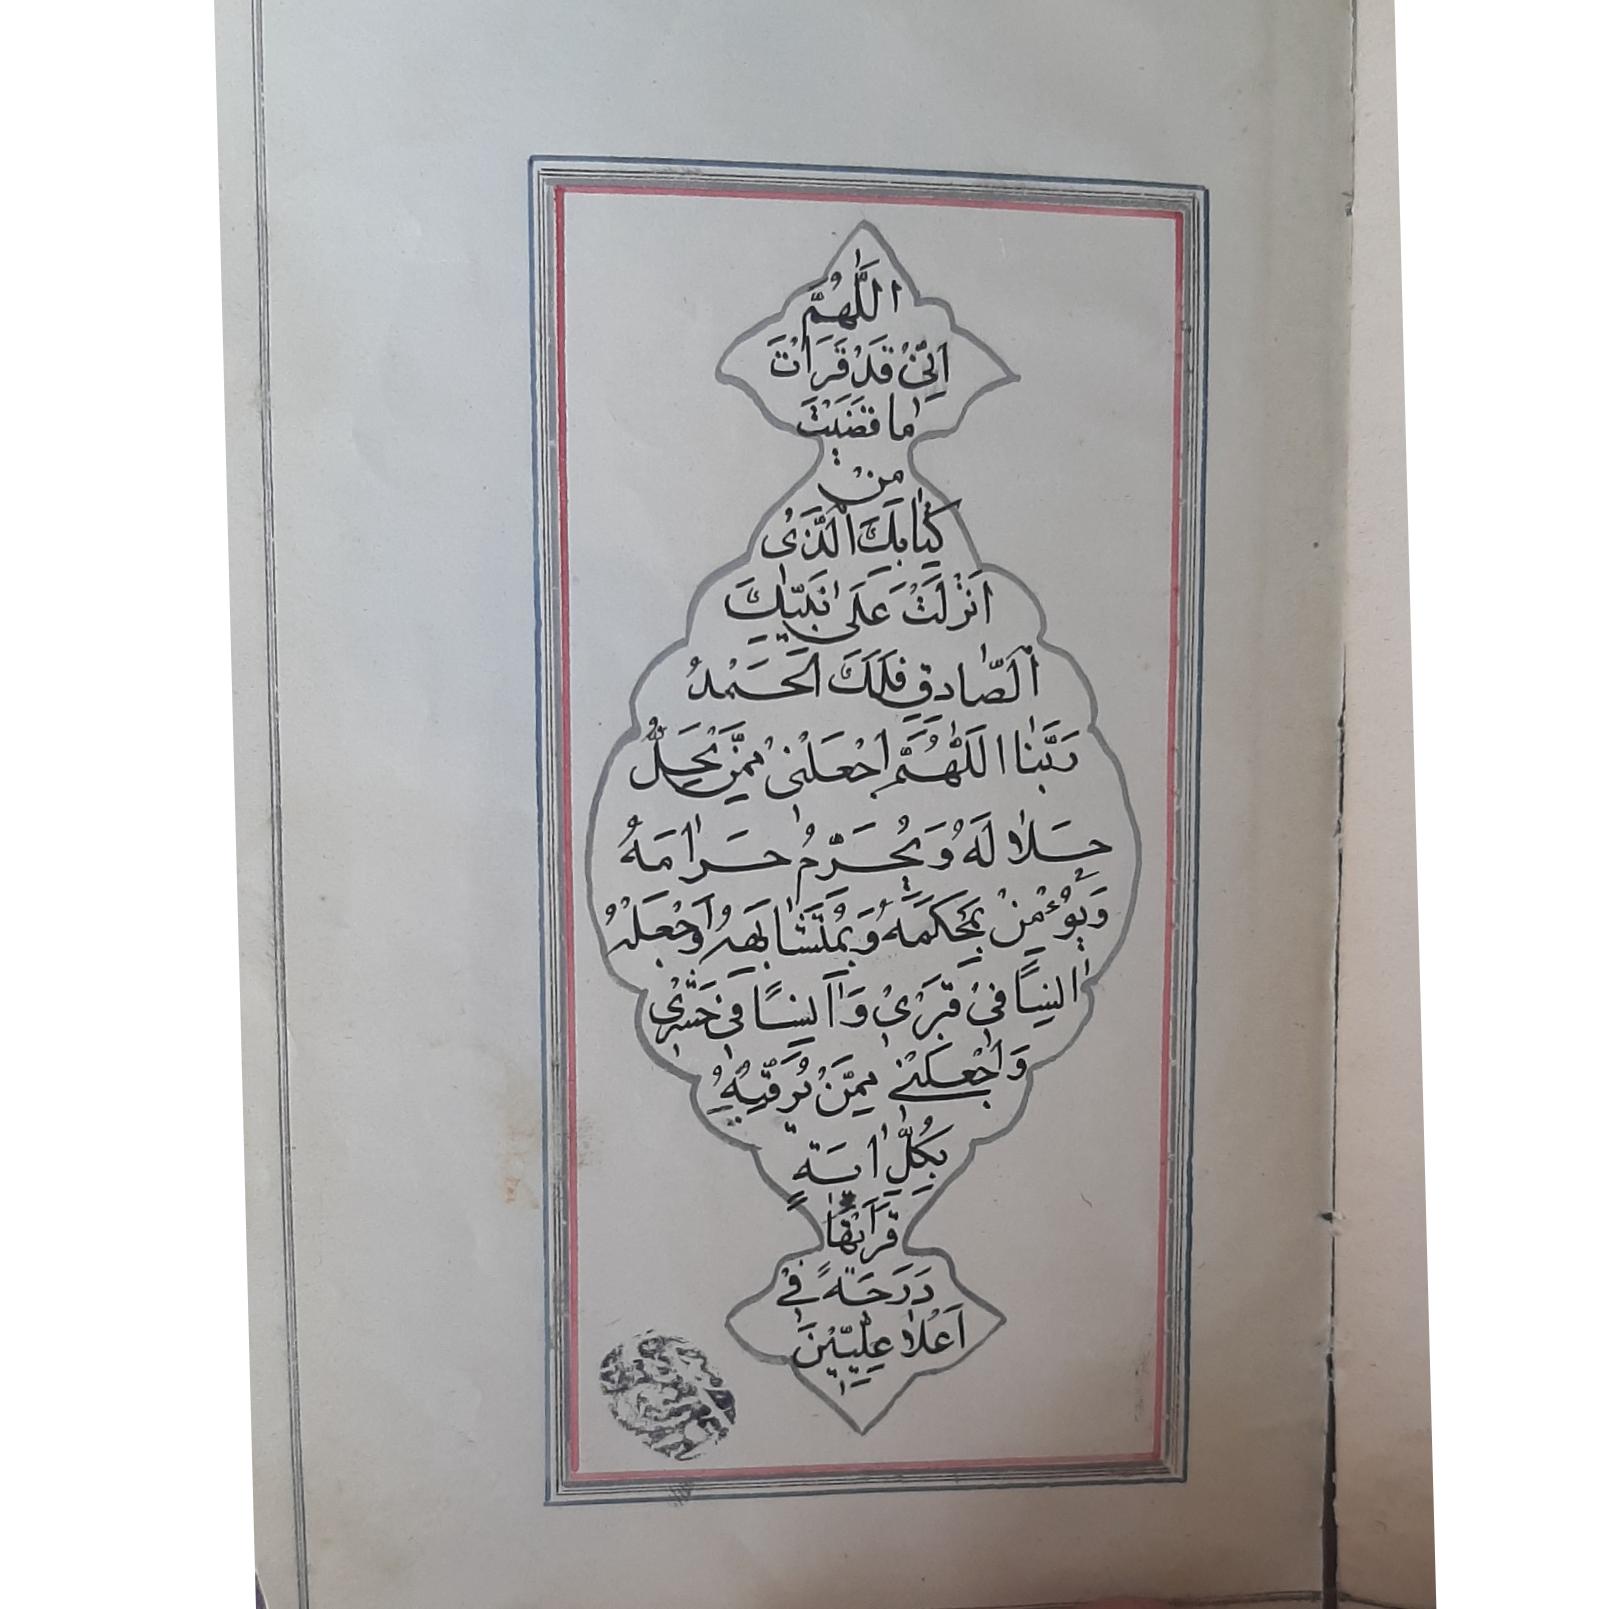 اَللّٰهُمَّ
اِنّىْ قَدْ قَرَاْتَ
مٰا قَضَيْتَ
مِنْ
كِتٰابِكَ الَّذَىْ
اَنْزَلْتَ عَلَى نَبِيّٰكِ
الْصّٰادِقِ فَلَكَ الْحَمْدُ
رَبَّنٰا اللّٰهُمَّ اَجْعَلْنىْ مِمَّنْ يُحِلُّ
حَلاٰلَهُ وَيُحَرِّمُ حَرٰامَهُ
وَيُؤْمِنْ بِمُحْكَمَهُ وَبِمُتَشٰابِهِهُ وَجْعَلْهُ
اٰنِسًا فىْ قَبْرىْ وَاٰنِسًا فىْ حَشْرىْ
وَاَجْعَلْنىْ مِمَّنْ تُرَقّيٖهُ
بِكُلِّ اٰيَةٍ
قَرَأَتْهٰا
دَرَجَةً فىْ
اَعْلاٰ عِلّيّٖينَ